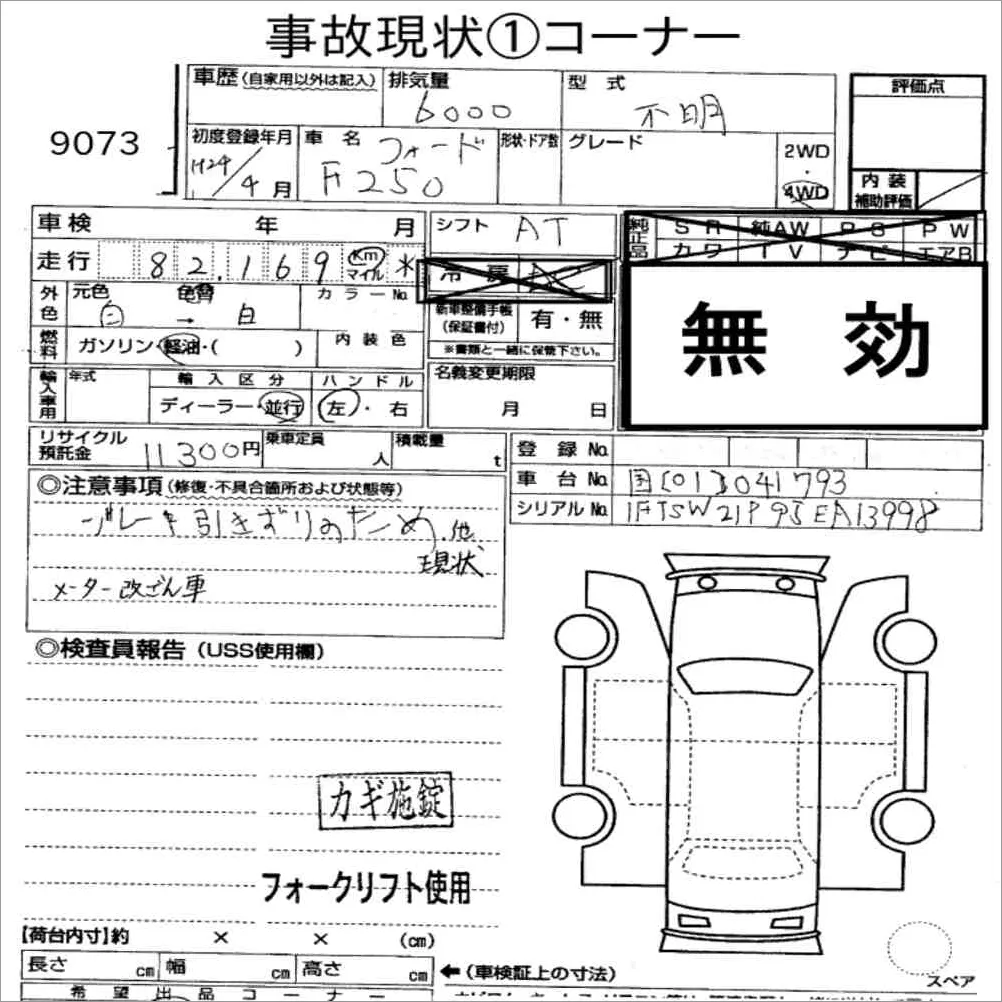 事故現状①コーナー
9073
車歴(自家用以外は記入)
排気量
6000
型 式
不明
評価点
初度登録年月
H24/4月
車 名
フォード
F250
形状・ドア数
グレード
2WD
・
4WD
内 装
補助評価
車検 年 月
シフト AT
純正品
S R 純AW P S P W
カ ワ T V ナ ビ エアB
走行 82,169 Km マイル ※
冷 房 AC
外色
元色 白
→
色替 白
カラーNo.
新車整備手帳
(保証書付)
有・無
※書類と一緒に保管下さい。
無 効
燃料
ガソリン・軽油・( )
内 装 色
輸入車用
年式
輸 入 区 分
ディーラー・並行
ハ ン ド ル
左・右
名義変更期限
月 日
リサイクル
預託金
11300円
乗車定員
人
積載量
t
登 録 No.
車 台 No. 国[01]041793
シリアル No. 1FTSW21P95EA13998
◎注意事項(修復・不具合箇所および状態等)
ブレーキ引きずりのため、他
現状
メーター改ざん車
◎検査員報告(USS使用欄)
カギ施錠
フォークリフト使用
【荷台内寸】約 × × (cm)
長さ cm 幅 cm 高さ cm
←(車検証上の寸法)
スペア
希 望 出 品 コ ー ナ ー